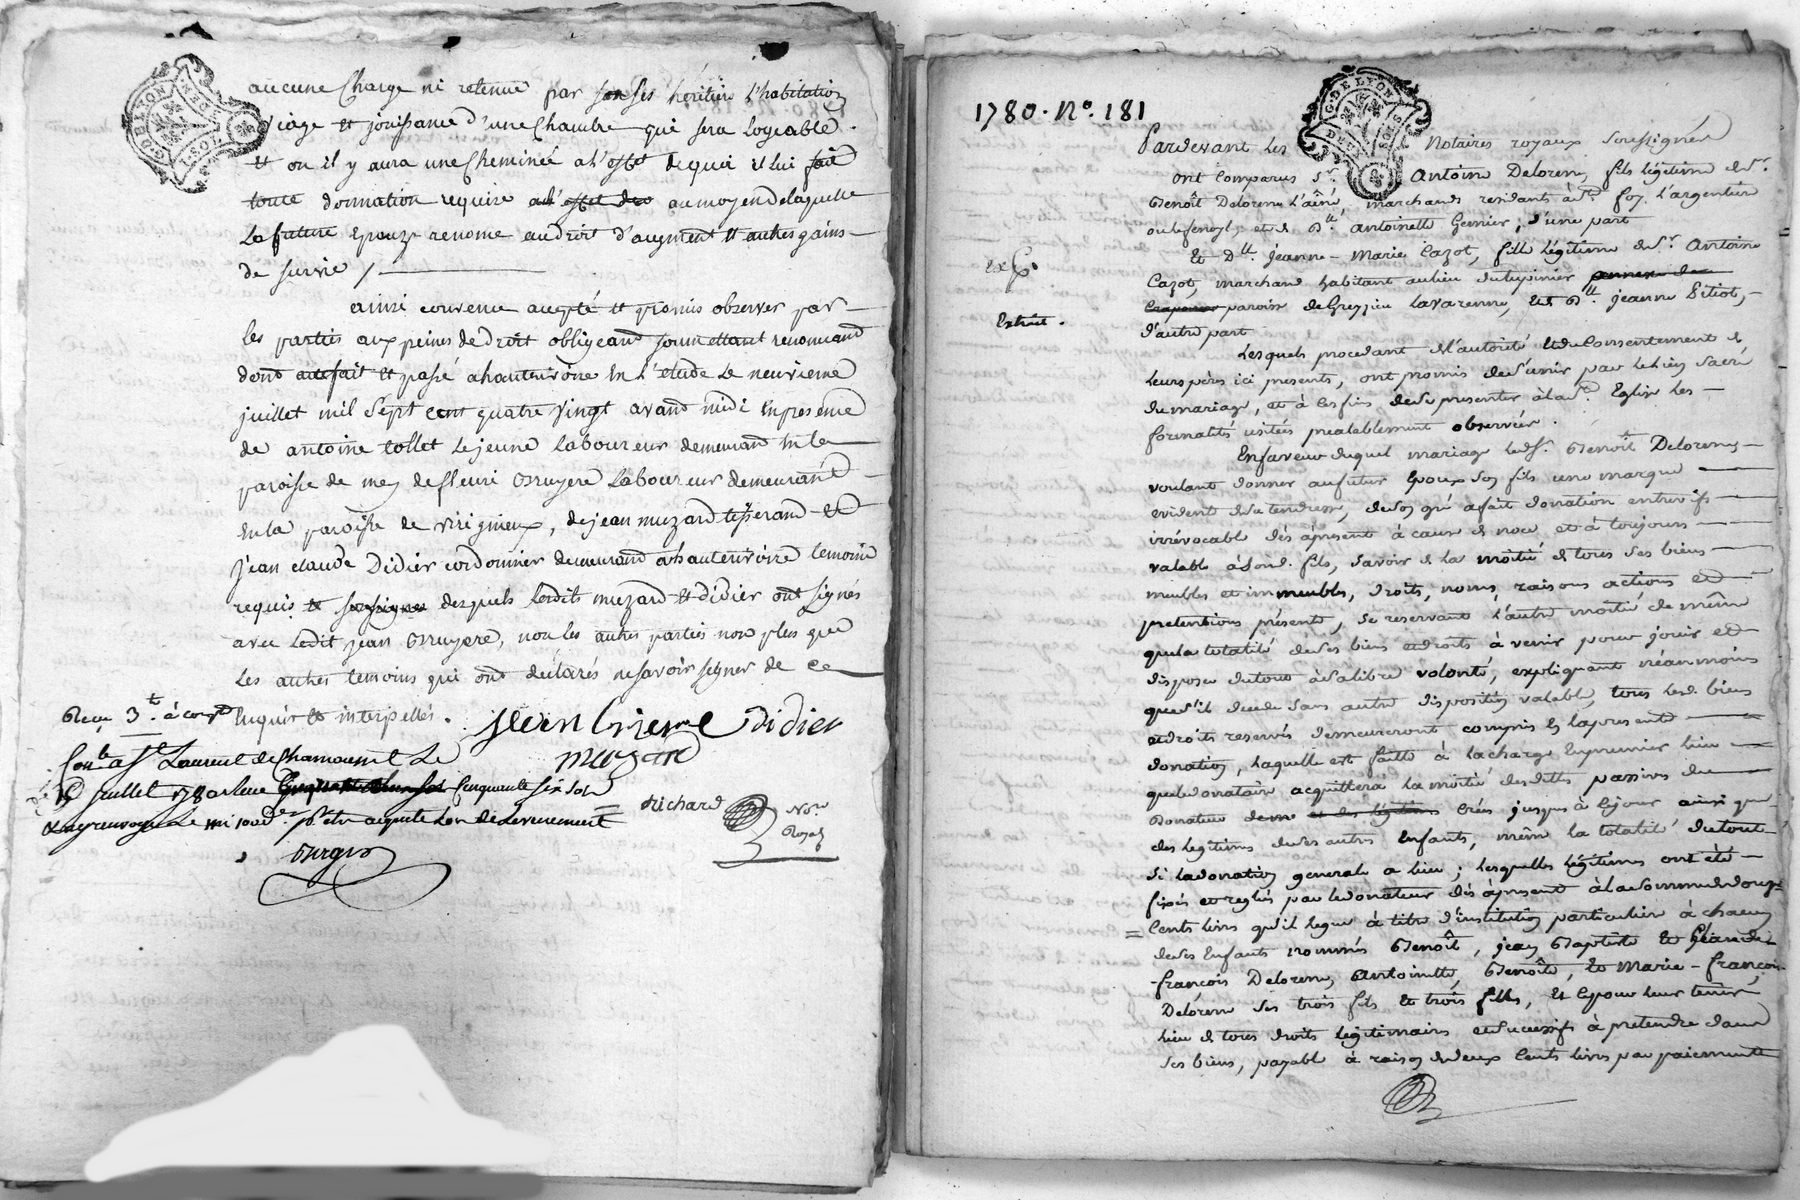 aucune Charge ni retenue par ses héritiers l'habitation
viage et jouissance d'une Chambre qui sera logeable.
et ou il y aura une Cheminée a l'effet de quoi il lui fait
toute donnation requise au moyen de laquelle
La future Epouze renonce au droit d'augment et autres gains
de survie /
ainsi convenu accepté et promis observer par
les parties aux peines de droit obligeand soumettant renonceand
dont acte fait et passé a hauterivoire en l'étude Le neuvieme
juillet mil sept cent quatre vingt avand midi En presence
de antoine tollet Le jeune Laboureur demeurand En la
paroisse de mey de fleuri Bruyere Laboureur demeurant
En la paroisse de virignieux, de jean muzard tisserand et
jean claude Didier cordonnier demeurand a hauterivoire temoins
requis desquels Lesdits muzard et didier ont signés
avec Ledit jean Bruyere, non les autres parties non plus que
Les autres temoins qui ont déclarés ne savoir signer de ce
Enquis et interpellés.
Recu 3 à compte
Jean Brierre Didier
muzard
Cont. a St Laurent de Chamousset Le
juillet 1780 Recu Cinquante six sols
Richard No.re Royal
1780. N.o 181
Pardevant Les Notaires royaux soussignés
ont comparus S.r Antoine Deloremy fils légitime de S.r
Benoît Deloremy L'aîné, marchands residants à S.te foy L'argentiere
et de D.lle antoinette Gernier, d'une part
Et D.lle Jeanne-Marie Cazot, fille légitime de S.r Antoine
Cazot, marchand habitant au lieu du
paroisse de Grezieu Lavarenne, et de D.lle jeanne Pitiot,
d'autre part
Extrait.
Lesquels procedant de l'autorité et du consentement de
leurs pères ici presents, ont promis de s'unir par le lien sacré
du mariage, et à ces fins de se presenter à la S.te Eglise Les
formalités usitées prealablement observées.
En faveur duquel mariage led. S.r Benoît Deloremy
voulant donner au futur Epoux son fils une marque
evidente de sa tendresse, de son gré a fait donation entrevifs
irrévocable dès àpresent à cause de noce et à toujours
valable à son d. fils, savoir de la moitié de tous ses biens
meubles et immeubles, droits, noms, raisons actions et
pretentions présents, se reservant L'autre moitié de même
que la totalité de ses biens et droits à venir pour jouir et
disposer du tout à sa libre volonté, expliquant néanmoins
que s'il decede sans autre disposition valable, tous lesd. biens
et droits reservés demeureront compris en la presente
donation, laquelle est faitte à la charge En premier lieu
que le donataire acquittera la moitié des dettes passives du
donateur crées jusques à ce jour ainsi que
des legitimes de ses autres Enfants, même la totalité du tout
si la donation generale a lieu; lesquelles légitimes ont été
fixées et reglées par le donateur dès àpresent à la somme de douze
Cents livres qu'il legue à titre d'institution particuliere à chacun
de ses Enfants nommés Benoît, jean Baptiste et Claude
françois Deloremy Antoinette, Benoîte, et Marie-françoise
Deloremy ses trois fils et trois filles, et ce pour leur tenir
lieu de tous droits légitimaires et successifs à pretendre dans
ses biens, payable à raison de deux Cents livres par paiement